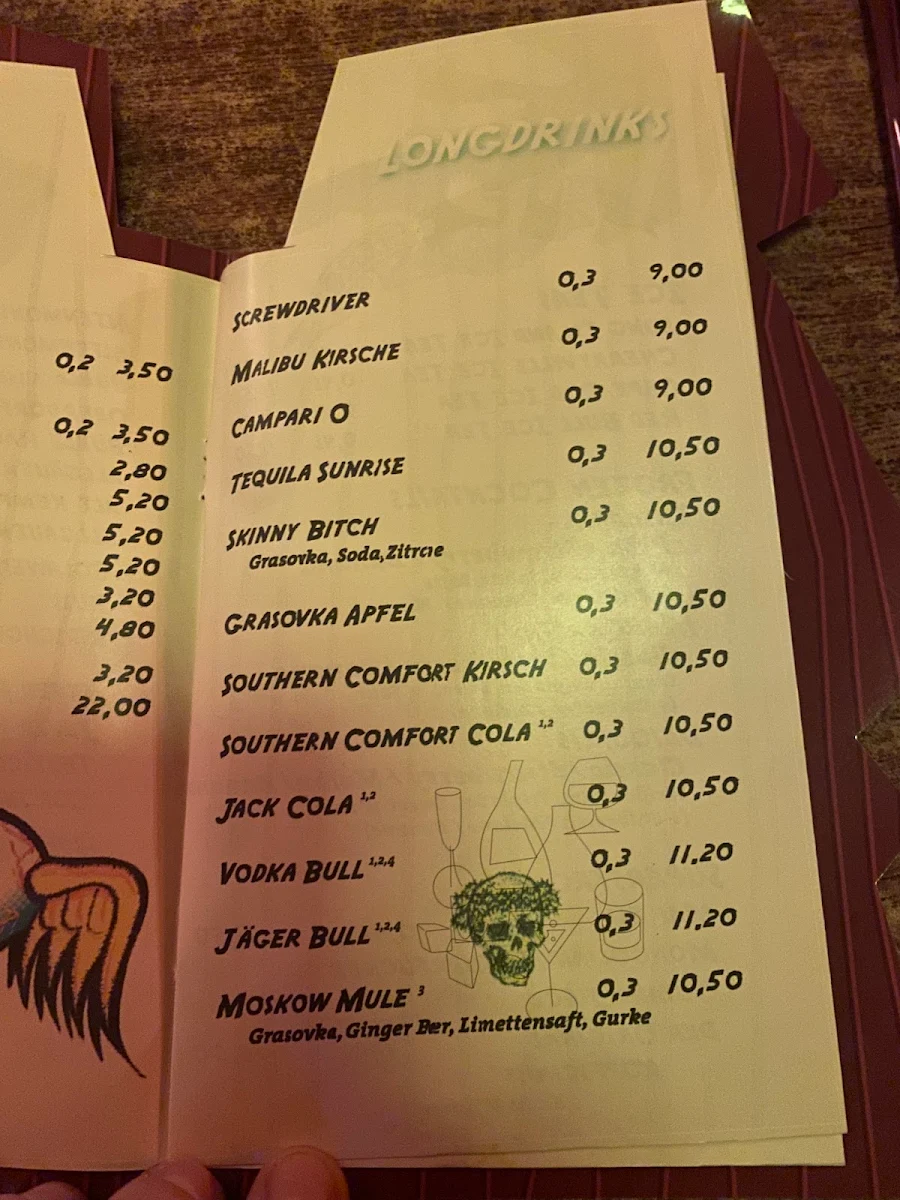 0,2 3,50
0,2 3,50
2,80
5,20
5,20
5,20
3,20
4,80
3,20
22,00
LONGDRINKS
SCREWDRIVER 0,3 9,00
MALIBU KIRSCHE 0,3 9,00
CAMPARI O 0,3 9,00
TEQUILA SUNRISE 0,3 10,50
SKINNY BITCH 0,3 10,50
Grasovka, Soda, Zitrone
GRASOVKA APFEL 0,3 10,50
SOUTHERN COMFORT KIRSCH 0,3 10,50
SOUTHERN COMFORT COLA 1,2 0,3 10,50
JACK COLA 1,2 0,3 10,50
VODKA BULL 1,2,4 0,3 11.20
JÄGER BULL 1,2,4 0,3 11,20
MOSKOW MULE 3 0,3 10,50
Grasovka, Ginger Beer, Limettensaft, Gurke